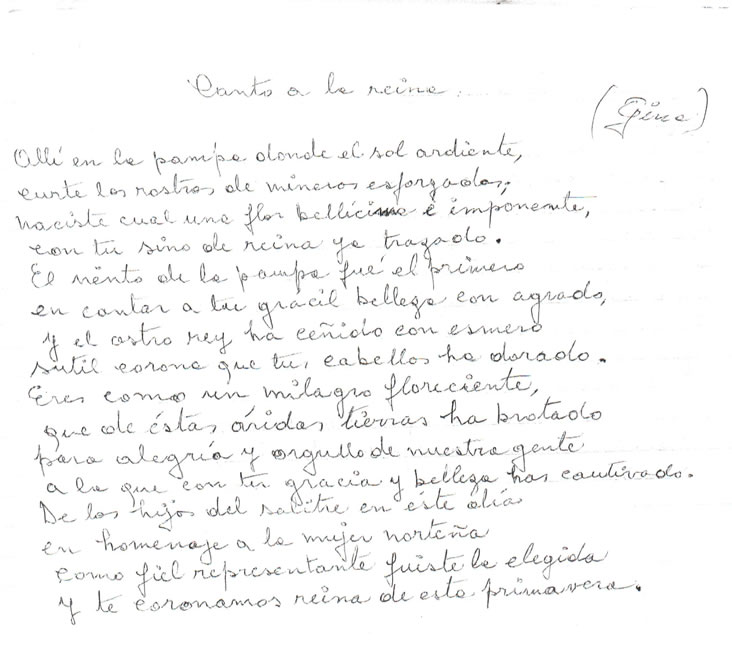 Canto a la reina.
(Gina)
Allí en la pampa donde el sol ardiente,
curte los rostros de mineros esforzados;
naciste cual una flor bellícima é imponente,
con tú sino de reina ya trazado.
El viento de la pampa fué el primero
en cantar a tu grácil belleza con agrado,
y el astro rey ha ceñido con esmero
sutil corona que tus cabellos ha dorado.
Eres como un milagro floreciente,
que de éstas áridas tierras ha brotado
para alegría y orgullo de nuestra gente
a la que con tú gracia y belleza has cautivado.
De los hijos del salitre en éste día
en homenaje a la mujer norteña
como fiel representante fuiste la elegida
y te coronamos reina de esta primavera.